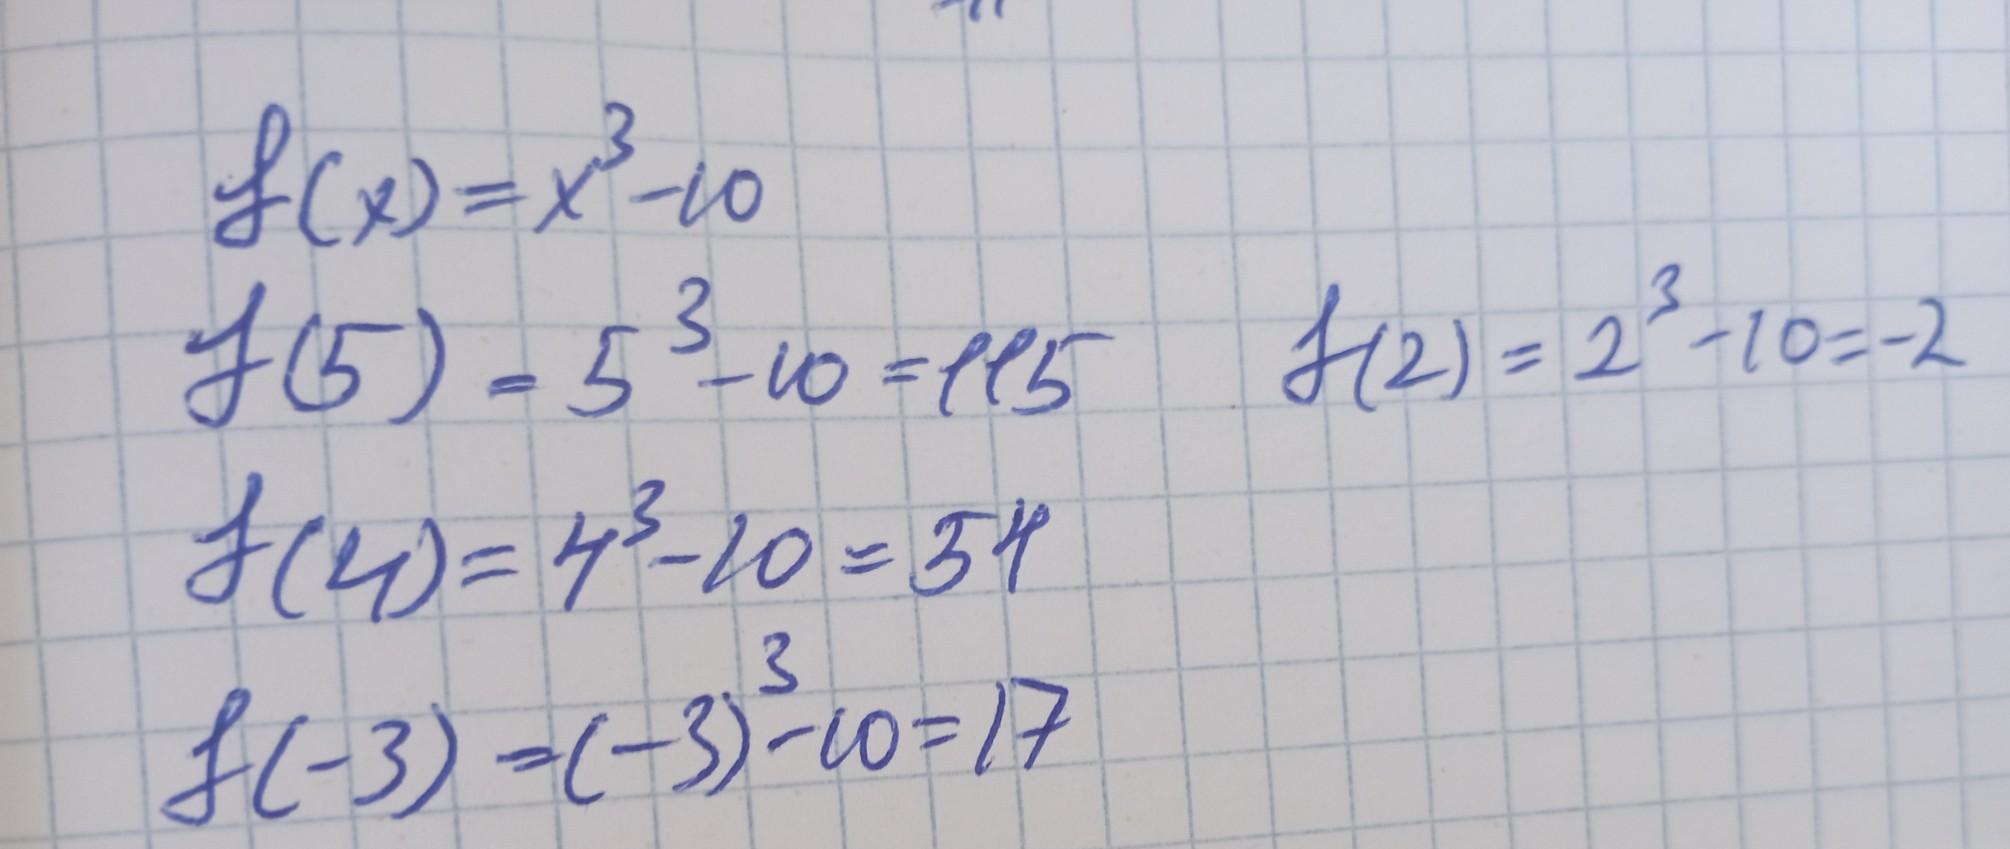 f(x) = x³ - 10
f(5) = 5³ - 10 = 115
f(2) = 2³ - 10 = -2
f(4) = 4³ - 10 = 54
f(-3) = (-3)³ - 10 = 17